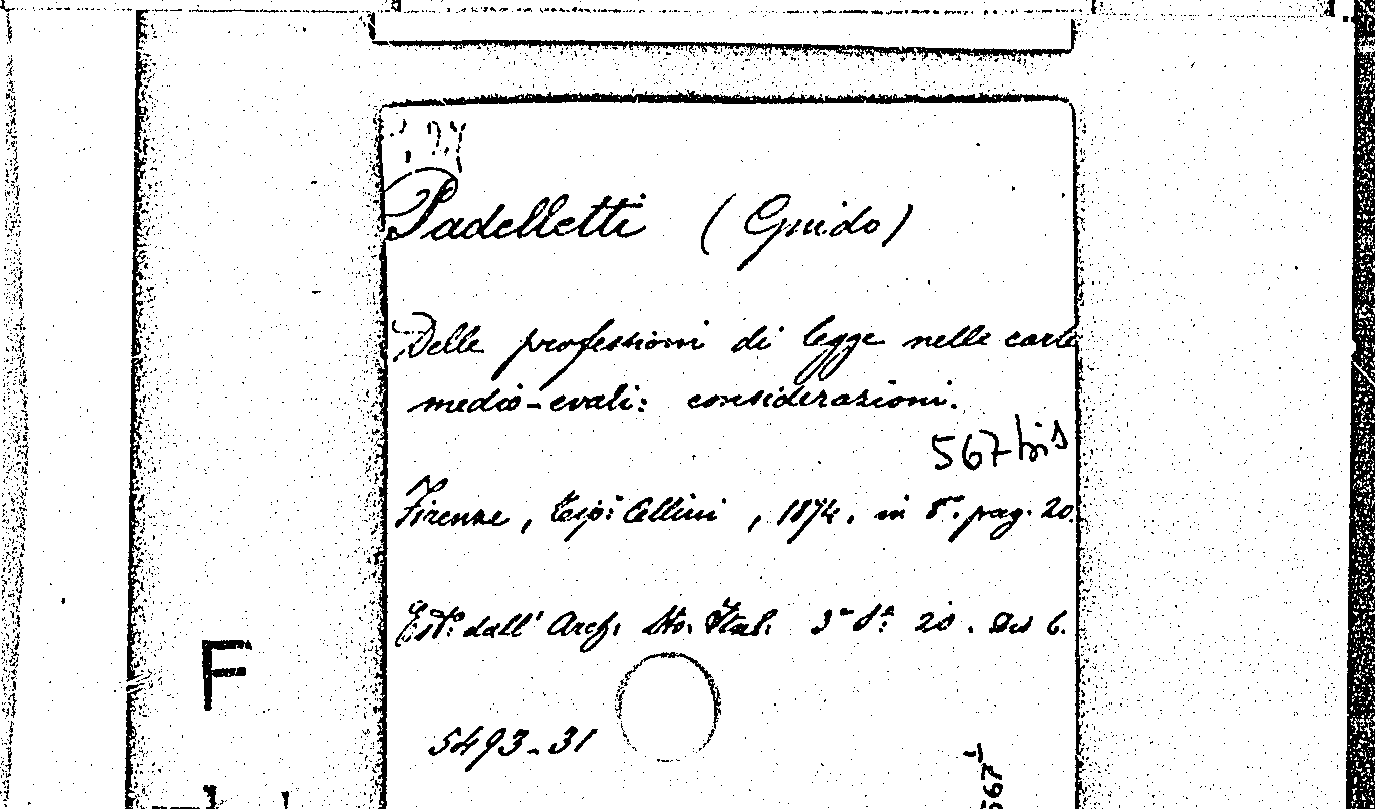 Padelletti (Guido)
Delle professioni di legge nelle carte
medio-evali: considerazioni.
567 bis
Firenze, Tip: Cellini, 1874. in 8°. pag. 20.
Est° dall' Arch. Sto. Ital. 3ª Sª: 20.
F
5493-31
567